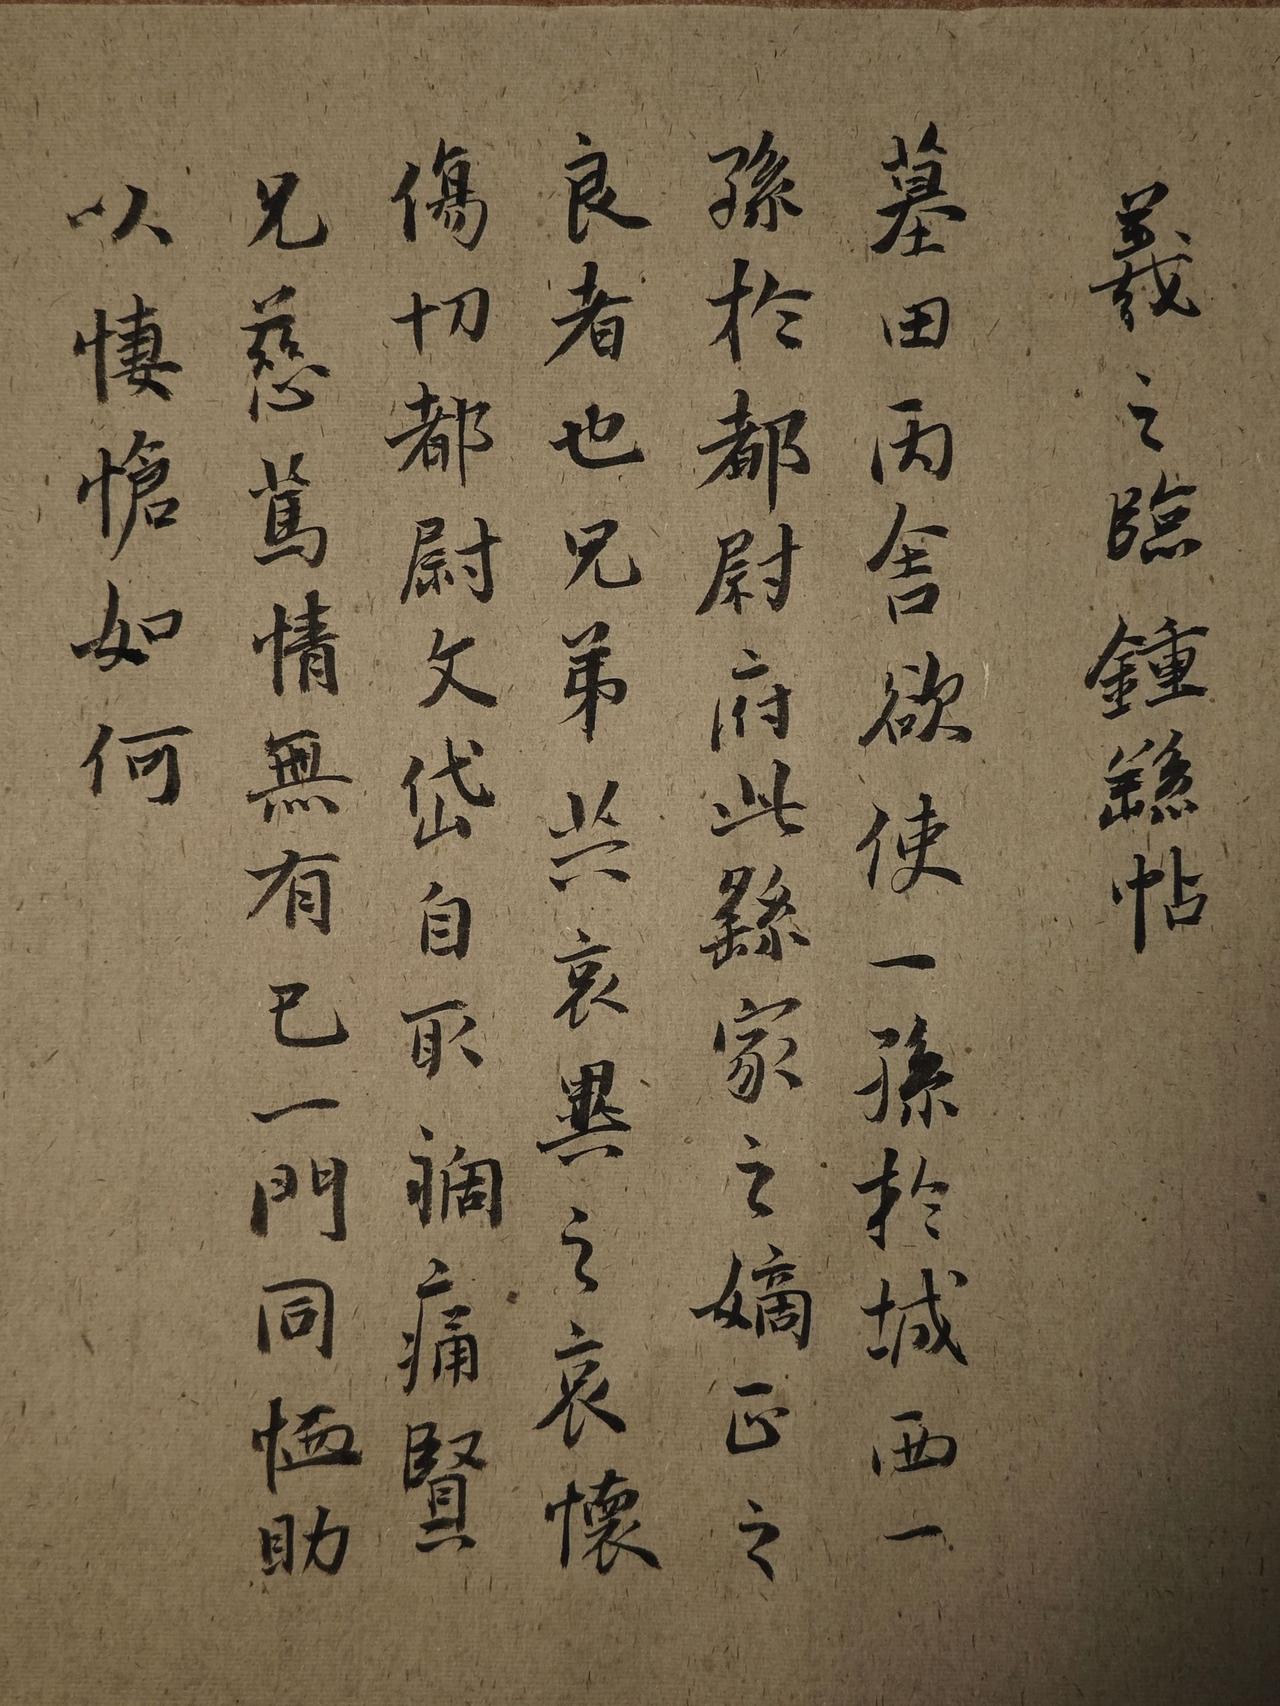 羲之臨鍾繇帖
墓田丙舍欲使一孫於城西一
孫於都尉府此繇家之嫡正之
良者也兄弟共哀異之哀懷
傷切都尉文岱自取禍痛賢
兄慈篤情無有已一門同恤助
以悽愴如何